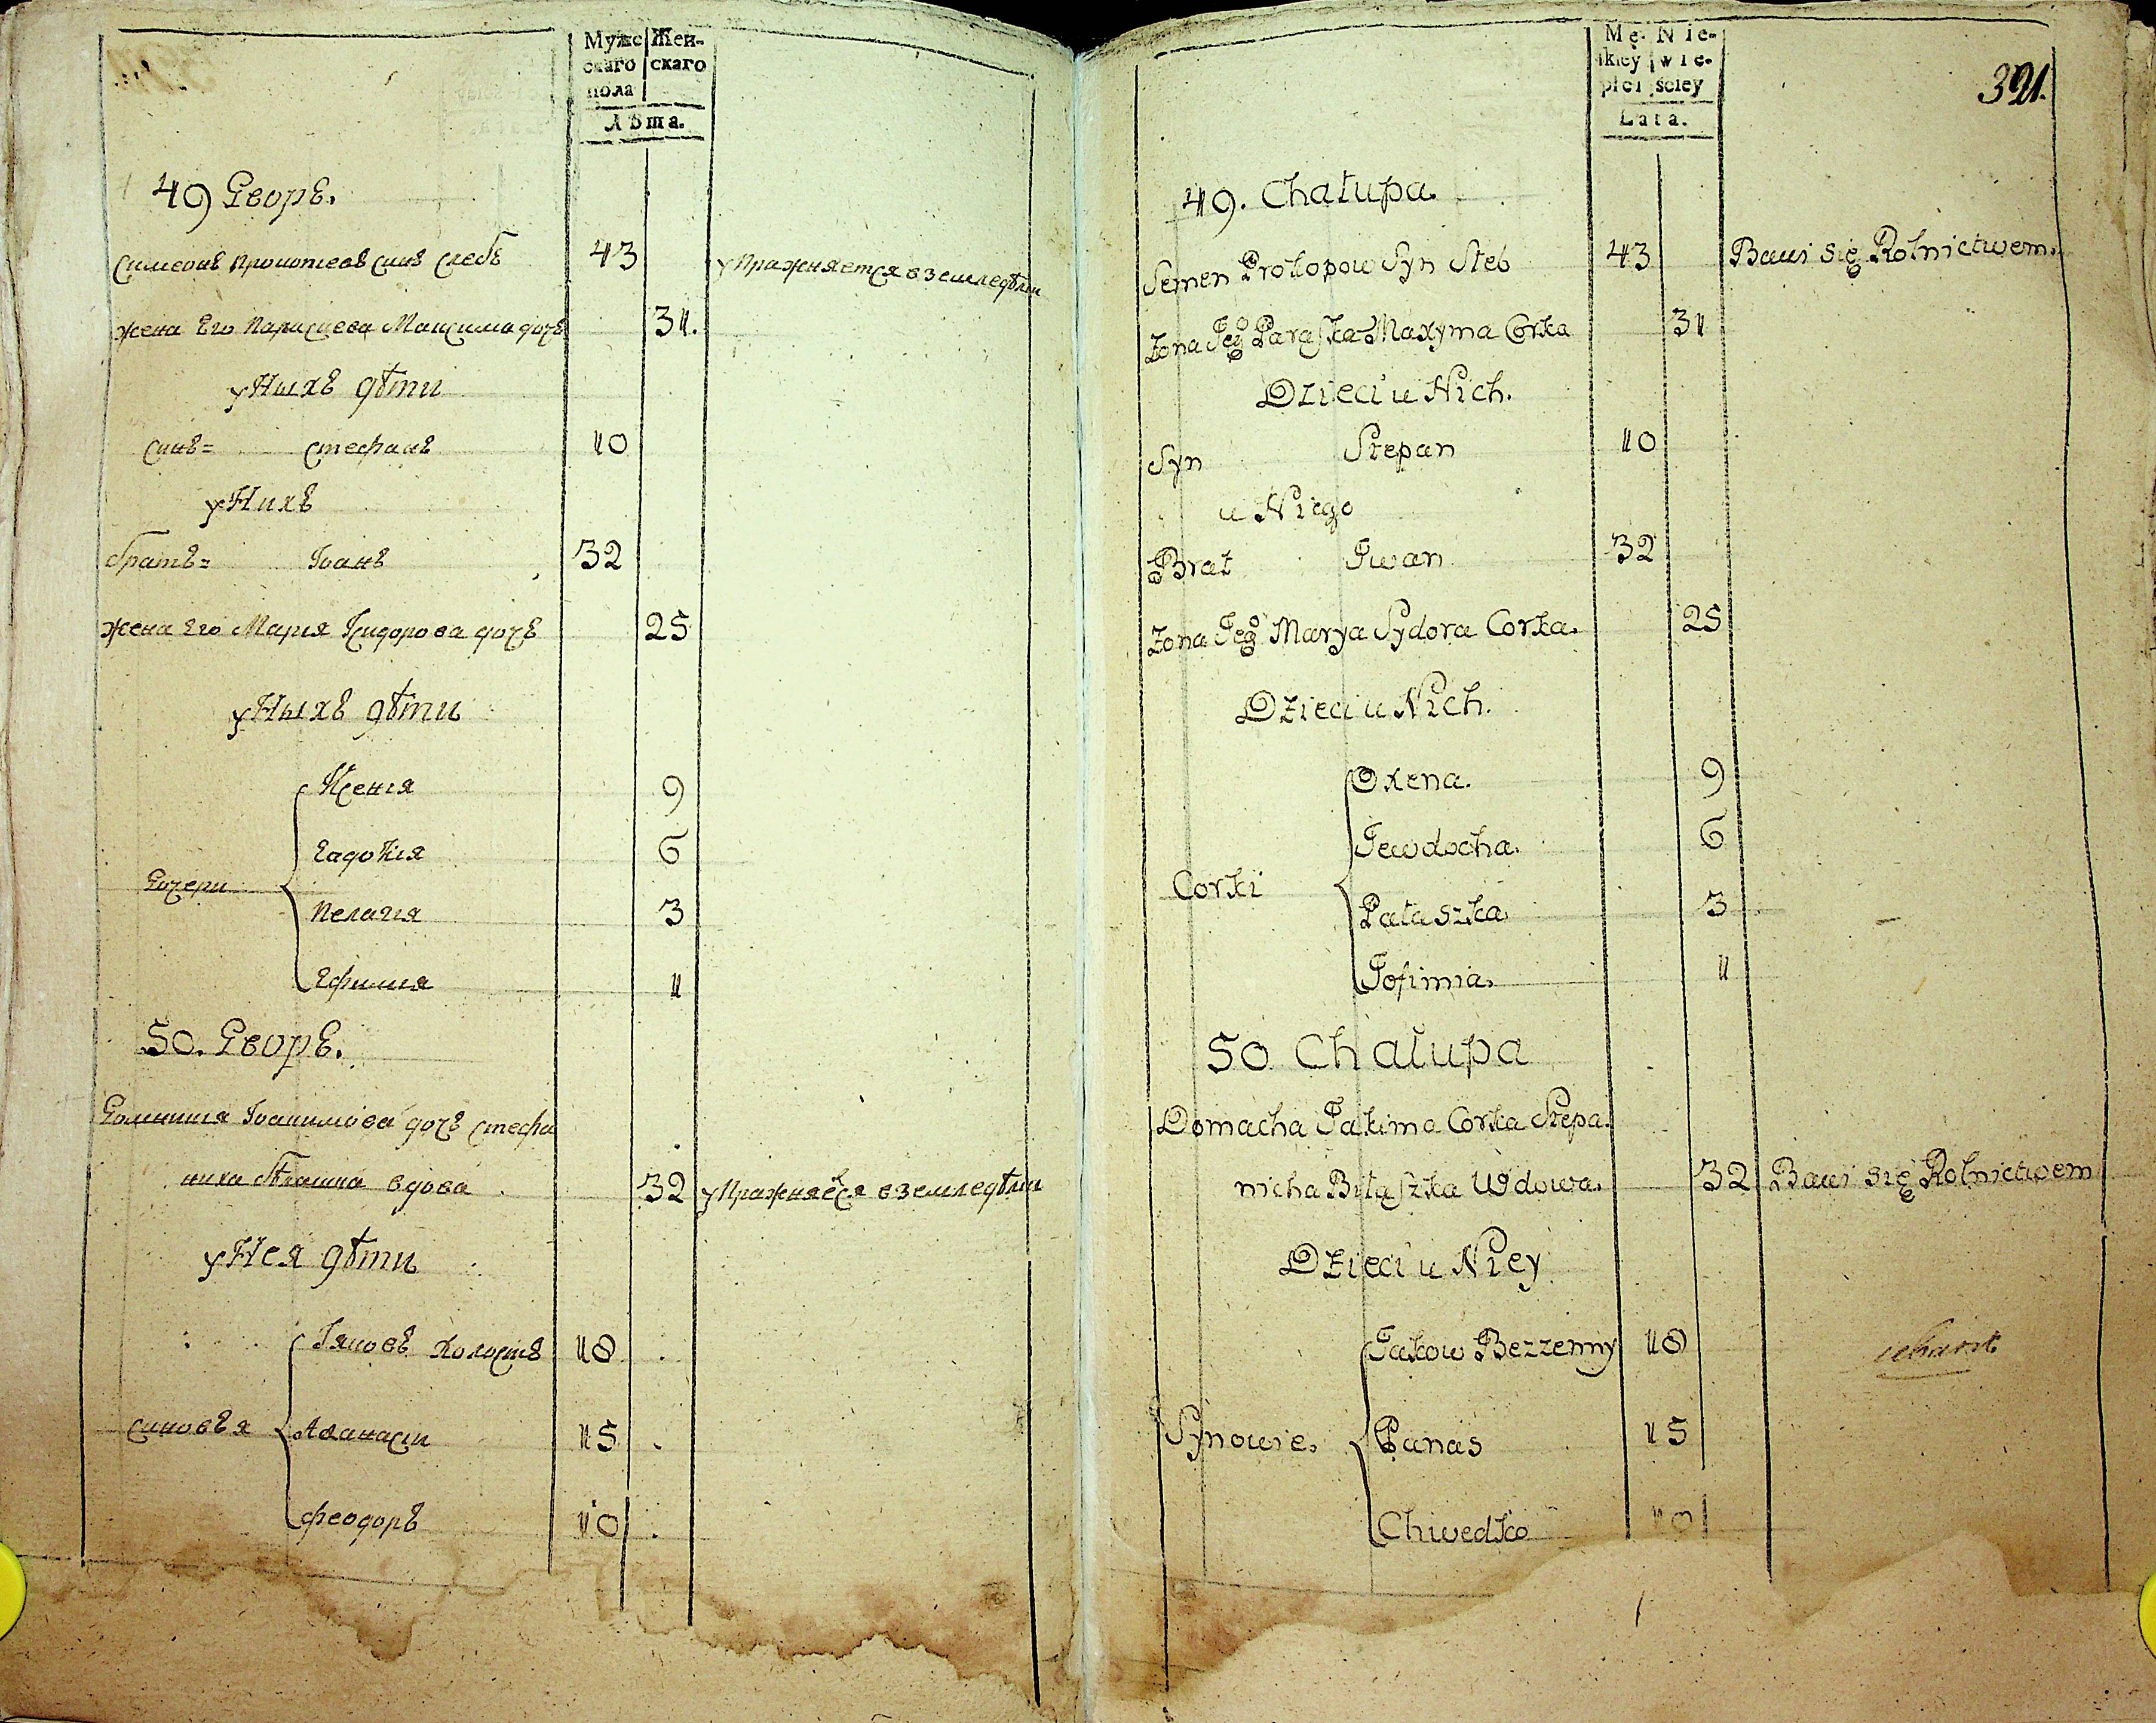 Мужс Жен-
скаго скаго
пола
Лѣта.
49 Дворъ.
Симеонъ Прокопіевъ синъ Слебъ 43 упражняется в земледѣлии
жена Его Параскева Максима дочъ 31.
у Ныхъ дѣти
синъ= Стефанъ 10
у Нихъ
братъ= Іоанъ 32
жена Его Марія Ісидорова дочъ 25
у Ныхъ дѣти
Ксенія 9
Евдокія 6
Дочери
Пелагія 3
Ефимия 1
50. Дворъ.
Домникия Іоакимова дочъ Стефа
ниха вдова 32 упражняется в земледѣлии
у Нея дѣти
Іяковъ холостъ 18
синовъя Аѳанасіи 15
Феодоръ 10
Mę- Nie-
skiey wie-
płci ściey
Lata.
321.
49. Chałupa.
Semen Prokopow Syn Sleb 43 Bawi się Rolnictwem.
Zona Jego Paraska Maxyma Corka 31
Dzieci u Nich.
Syn Stepan 10
u Niego
Brat Iwan 32
Zona Jego Marya Sydora Corka. 25
Dzieci u Nich.
Oxena. 9
Jewdocha. 6
Corki
Pałaszka 3
Jofimia. 1
50 Chałupa
Domacha Jakima Corka Stepa.
nicha Biłaszka Wdowa. 32 Bawi się Rolnictwem
Dzieci u Niey
Jakow Bezzenny 18
Synowie. Panas 15
Chwedko 10